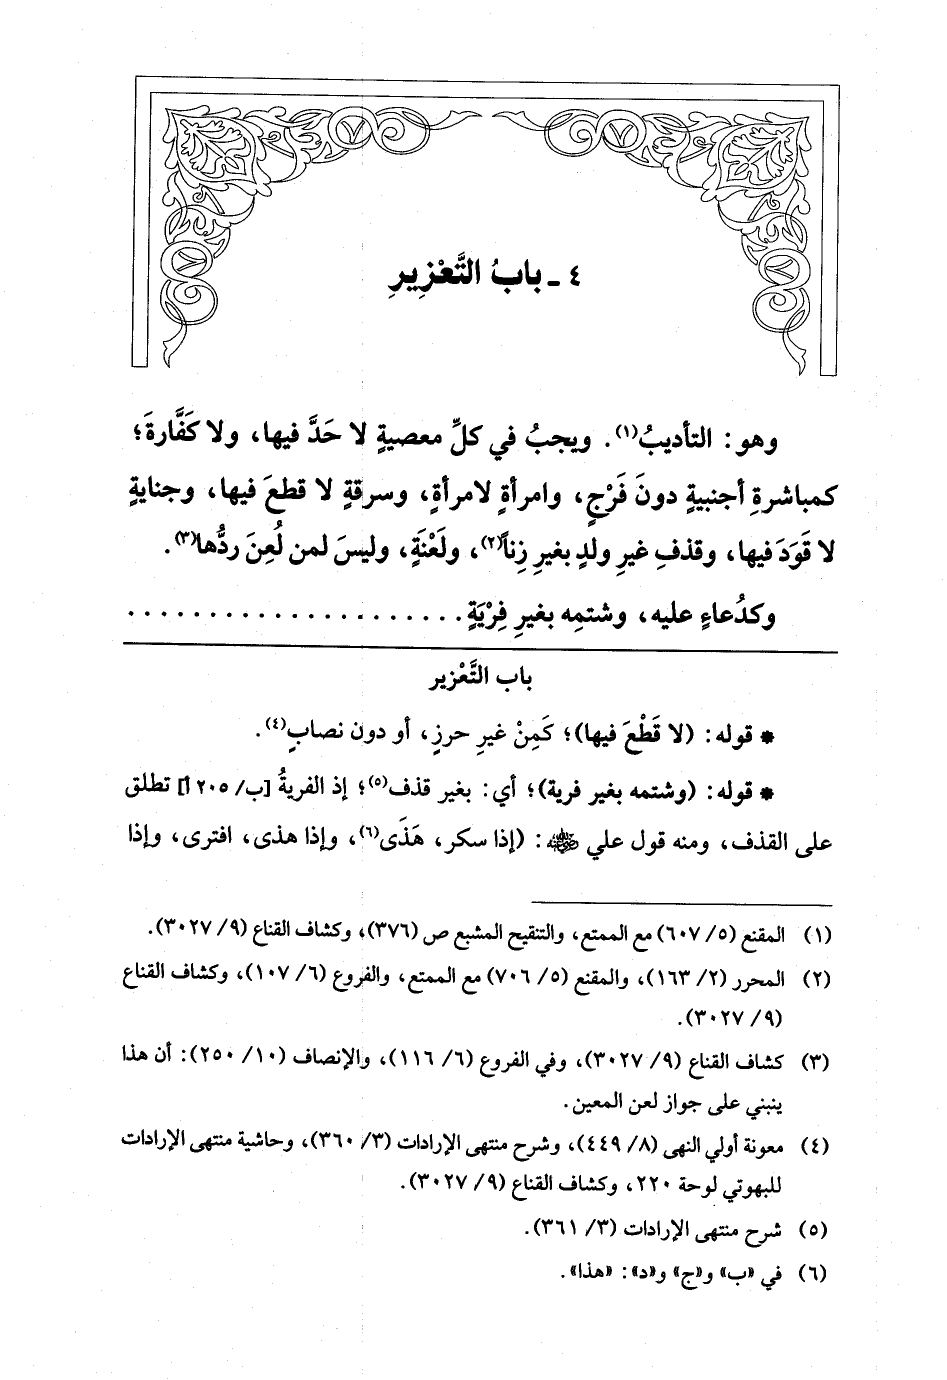 ٤ ـ بابُ التَّعْزِيرِ
وهو: التأديبُ(١). ويجبُ في كلِّ معصيةٍ لا حَدَّ فيها، ولا كَفَّارةَ؛
كمباشرةِ أجنبيةٍ دونَ فَرْجٍ، وامرأةٍ لامرأةٍ، وسرقةٍ لا قطعَ فيها، وجنايةٍ
لا قَوَدَ فيها، وقذفِ غيرِ ولدٍ بغيرِ زِناً(٢)، ولَعْنَةٍ، وليسَ لمن لُعِنَ ردُّها(٣).
وكدُعاءٍ عليه، وشتمِه بغيرِ فِرْيَةٍ . . . . . . . . . . . . . . . . . . . . .
باب التَّعْزير
* قوله: (لا قَطْعَ فيها)؛ كَمِنْ غيرِ حرزٍ، أو دون نصابٍ(٤).
* قوله: (وشتمه بغير فرية)؛ أي: بغير قذف(٥)؛ إذ الفريةُ [ب/ ٢٠٥ أ] تطلق
على القذف، ومنه قول علي رضي الله عنه: (إذا سكر، هَذَى(٦)، وإذا هذى، افترى، وإذا
(١) المقنع (٥/ ٦٠٧) مع الممتع، والتنقيح المشبع ص (٣٧٦)، وكشاف القناع (٩/ ٣٠٢٧).
(٢) المحرر (٢/ ١٦٣)، والمقنع (٥/ ٧٠٦) مع الممتع، والفروع (٦/ ١٠٧)، وكشاف القناع
(٩/ ٣٠٢٧).
(٣) كشاف القناع (٩/ ٣٠٢٧)، وفي الفروع (٦/ ١١٦)، والإنصاف (١٠/ ٢٥٠): أن هذا
ينبني على جواز لعن المعين.
(٤) معونة أولي النهى (٨/ ٤٤٩)، وشرح منتهى الإرادات (٣/ ٣٦٠)، وحاشية منتهى الإرادات
للبهوتي لوحة ٢٢٠، وكشاف القناع (٩/ ٣٠٢٧).
(٥) شرح منتهى الإرادات (٣/ ٣٦١).
(٦) في «ب» و«ج» و«د»: «هذا».